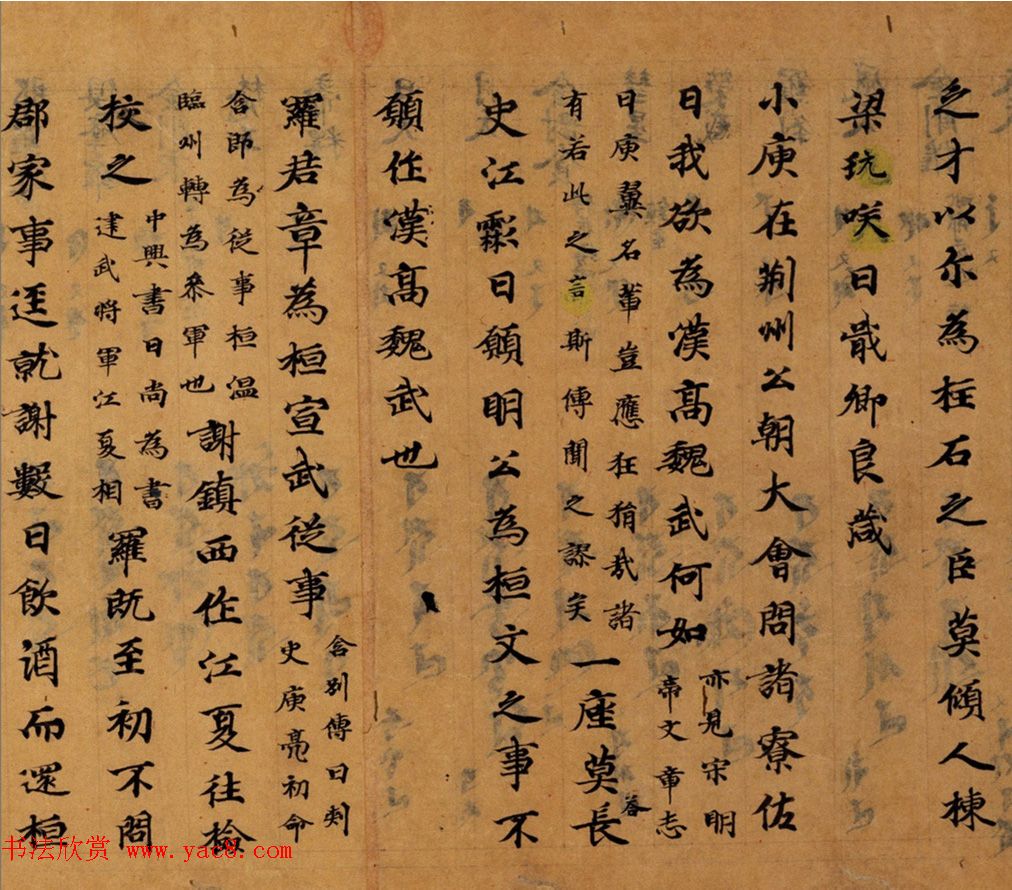 之才以尓為柱石之臣莫傾人棟
梁玩咲曰戢卿良箴
小庾在荊州公朝大會問諸寮佐
曰我欲為漢高魏武何如
亦見宋明
帝文章志
曰庾翼名輩豈應狂狷哉諸
有若此之言斯傳聞之謬矣
一座莫荅長
史江虨曰願明公為桓文之事不
願作漢高魏武也
羅君章為桓宣武從事
含別傳曰刾
史庾亮初命
含即為從事桓温
臨州轉為叅軍也
謝鎮西作江夏往檢
校之
中興書曰尚為書
建武將軍江夏相
羅既至初不問
郡家事逕就謝數日飲酒而還桓
书法欣赏 www.yac8.com